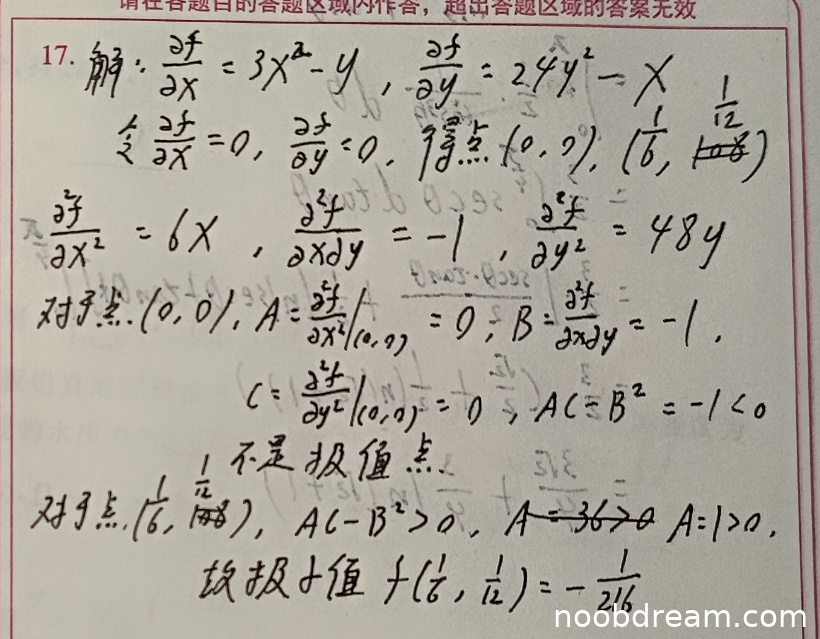 请在各题目的答题区域内作答，超出答题区域的答案无效
17. 解: ∂f/∂x = 3x² - y , ∂f/∂y = 24y² - x
令 ∂f/∂x = 0, ∂f/∂y = 0, 得点 (0, 0), (1/6, 1/12)
∂²f/∂x² = 6x , ∂²f/∂x∂y = -1 , ∂²f/∂y² = 48y
对于点 (0, 0), A = ∂²f/∂x²|(0,0) = 0, B = ∂²f/∂x∂y = -1,
C = ∂²f/∂y²|(0,0) = 0 , AC - B² = -1 < 0
不是极值点
对于点 (1/6, 1/12), AC - B² > 0, A = 36 > 0 A = 1 > 0,
故极小值 f(1/6, 1/12) = -1/216
noobdream.com